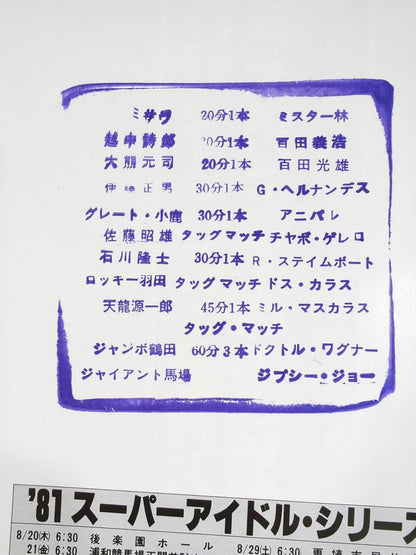 ミサワ 20分1本 ミスター林
越中詩郎 20分1本 百田義浩
大熊元司 20分1本 百田光雄
伊藤正男 30分1本 G・ヘルナンデス
グレート・小鹿 30分1本 アニバル
佐藤昭雄 タッグマッチ チャボ・ゲレロ
石川隆士 30分1本 R・ステイムボート
ロッキー羽田 タッグマッチ ドス・カラス
天龍源一郎 45分1本 ミル・マスカラス
タッグ・マッチ
ジャンボ鶴田 60分3本 ドクトル・ワグナー
ジャイアント馬場 ジプシー・ジョー
'81スーパーアイドル・シリーズ
8/20(木) 6:30 後楽園ホール 8/29(土) 6:30
21(金) 6:30